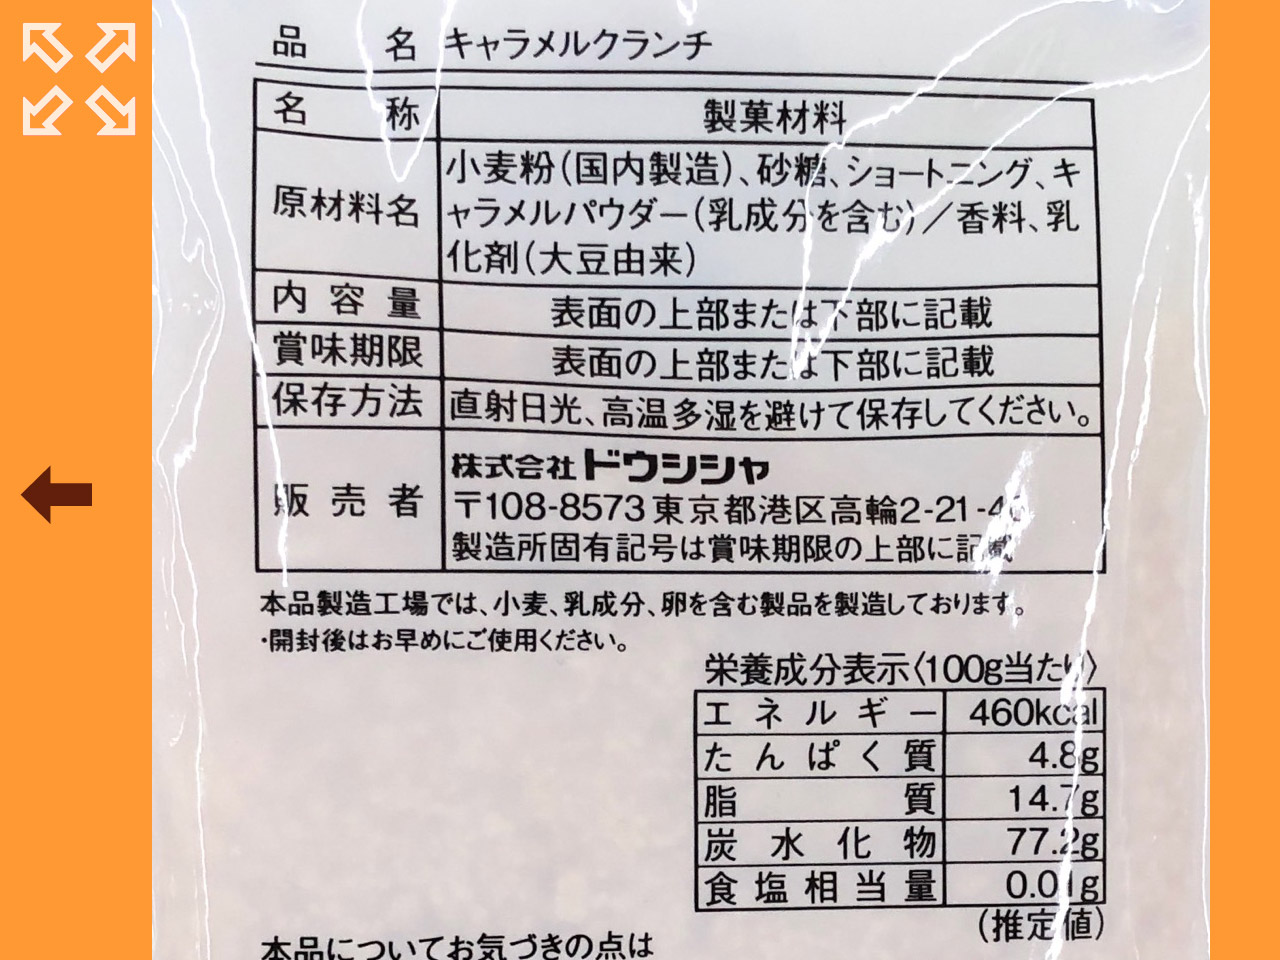 品名 キャラメルクランチ
名称 製菓材料
原材料名 小麦粉(国内製造)、砂糖、ショートニング、キ
ャラメルパウダー(乳成分を含む)/香料、乳
化剤(大豆由来)
内容量 表面の上部または下部に記載
賞味期限 表面の上部または下部に記載
保存方法 直射日光、高温多湿を避けて保存してください。
販売者 株式会社ドウシシャ
〒108-8573 東京都港区高輪2-21-
製造所固有記号は賞味期限の上部に記載
本品製造工場では、小麦、乳成分、卵を含む製品を製造しております。
・開封後はお早めにご使用ください。
栄養成分表示〈100g当たり〉
エネルギー 460kcal
たんぱく質 4.8g
脂質 14.7g
炭水化物 77.2g
食塩相当量
(推定値)
本品についてお気づきの点は